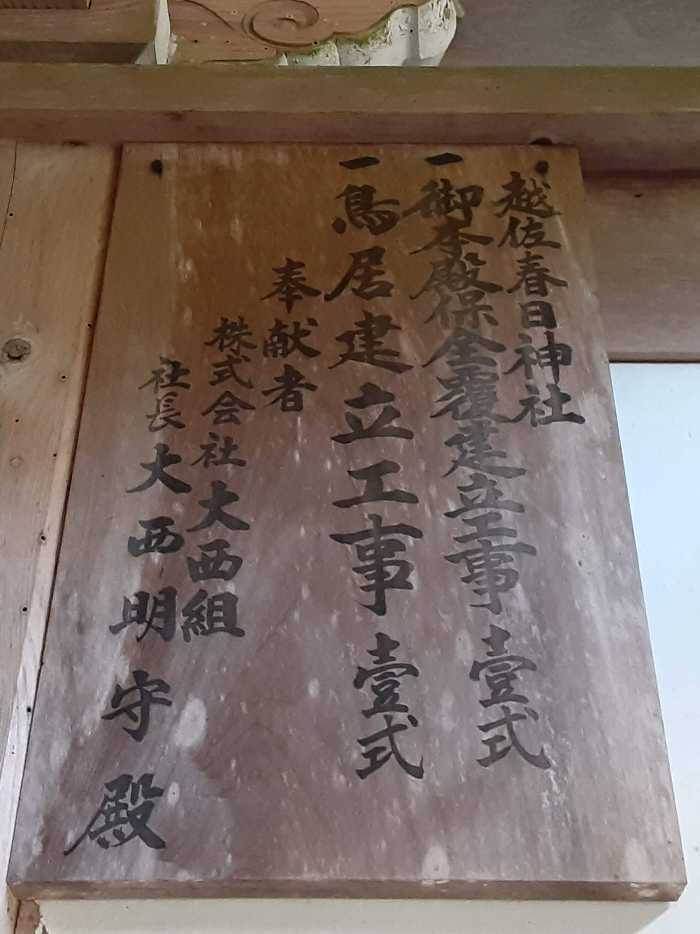 越佐春日神社
一御本殿保全覆建立工事壹式
一鳥居建立工事壹式
奉献者
株式会社大西組
社長大西明守殿